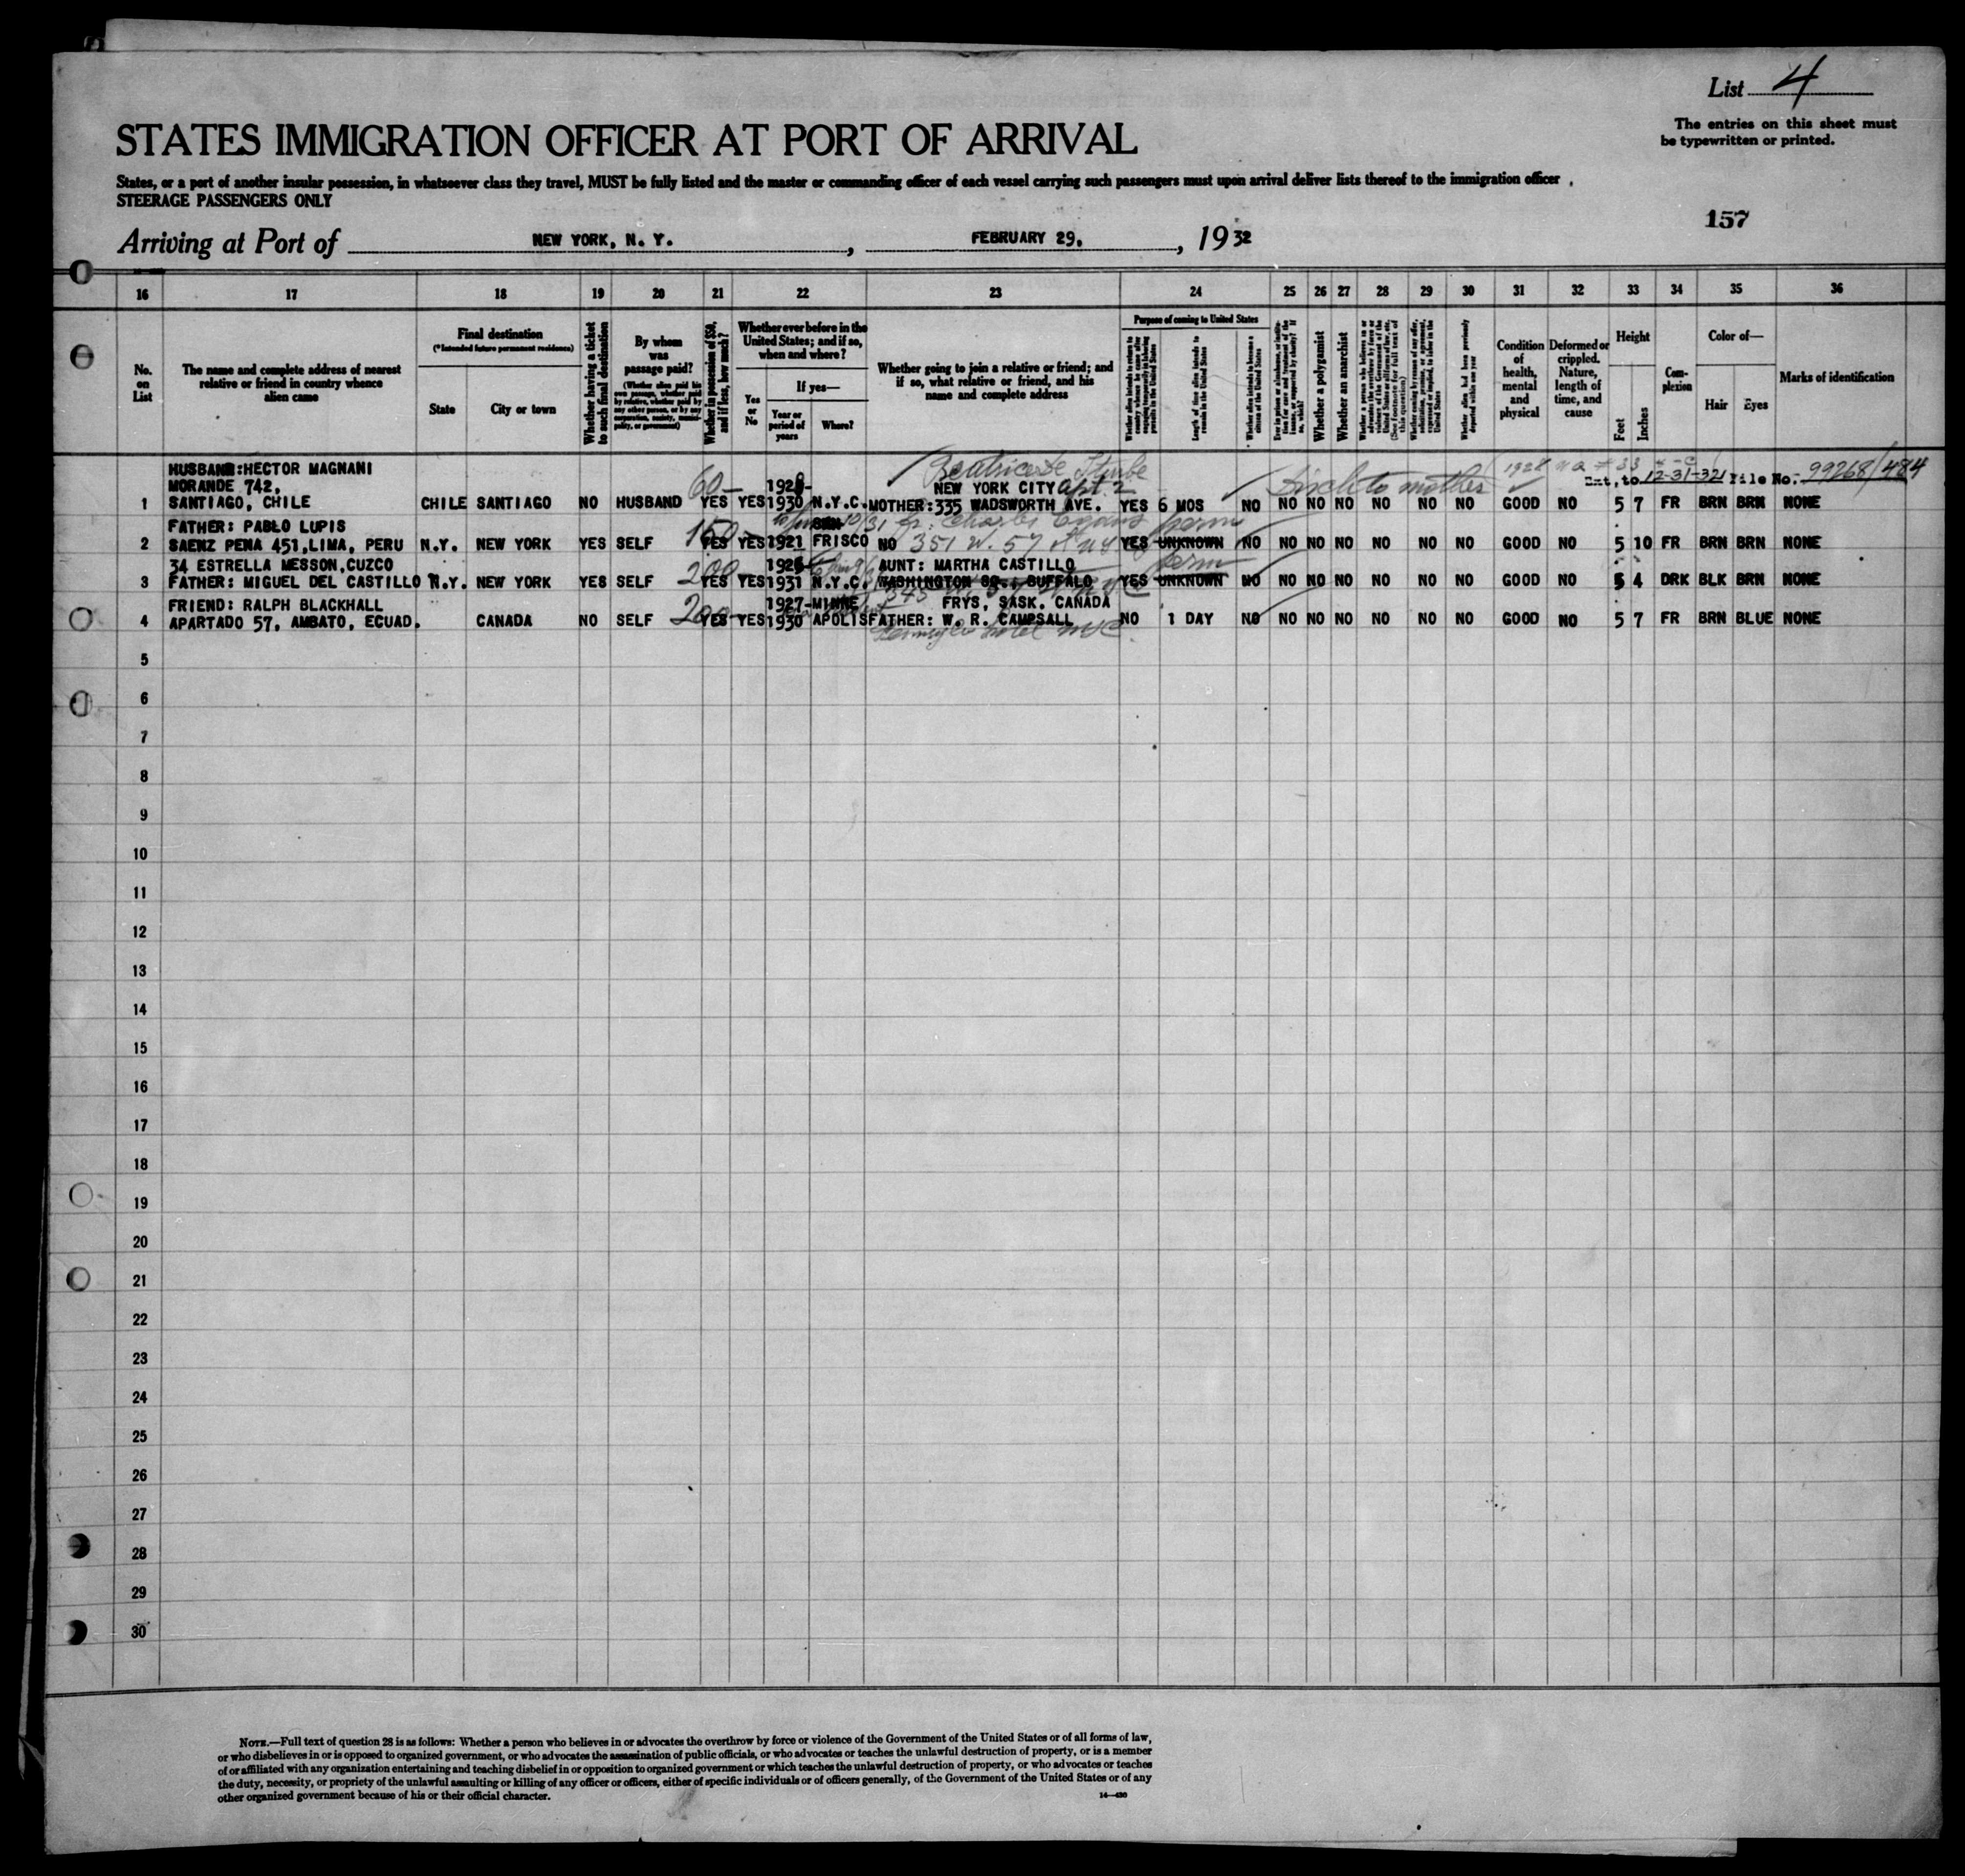 List 4
The entries on this sheet must
be typewritten or printed.
STATES IMMIGRATION OFFICER AT PORT OF ARRIVAL
States, or a port of another insular possession, in whatsoever class they travel, MUST be fully listed and the master or commanding officer of each vessel carrying such passengers must upon arrival deliver lists thereof to the immigration officer
STEERAGE PASSENGERS ONLY
157
Arriving at Port of NEW YORK, N. Y. , FEBRUARY 29, , 1932
16 17 18 19 20 21 22 23 24 25 26 27 28 29 30 31 32 33 34 35 36
No. on List
The name and complete address of nearest relative or friend in country whence alien came
Final destination
(*Intended future permanent residence)
State
City or town
Whether having a ticket to such final destination
By whom was passage paid?
(Whether alien paid his own passage, whether paid by relative, whether paid by any other person, or by any corporation, society, municipality, or government)
Whether in possession of $50, and if less, how much?
Whether ever before in the United States; and if so, when and where?
Yes or No
If yes—
Year or period of years
Where?
Whether going to join a relative or friend; and if so, what relative or friend, and his name and complete address
Purpose of coming to United States
Length of time alien intends to remain in the United States
Whether alien intends to become a citizen of the United States
Whether a polygamist
Whether an anarchist
Whether alien had been previously deported within one year
Condition of health, mental and physical
Deformed or crippled. Nature, length of time, and cause
Height
Feet
Inches
Complexion
Color of—
Hair
Eyes
Marks of identification
HUSBAND:HECTOR MAGNANI Beatrice
MORANDE 742, 60— 1928- NEW YORK CITY apt. 2 to mother Ext. to 12-31-32 File No. 99268/484
1 SANTIAGO, CHILE CHILE SANTIAGO NO HUSBAND YES YES 1930 N.Y.C. MOTHER:335 WADSWORTH AVE. YES 6 MOS NO NO NO NO NO NO NO GOOD NO 5 7 FR BRN BRN NONE
FATHER: PABLO LUPIS 150— SAN 10/31 fr: Charles perm
2 SAENZ PENA 451,LIMA, PERU N.Y. NEW YORK YES SELF YES YES 1921 FRISCO NO 351 W. 57 St NY YES UNKNOWN NO NO NO NO NO NO NO GOOD NO 5 10 FR BRN BRN NONE
34 ESTRELLA MESSON,CUZCO 200— AUNT: MARTHA CASTILLO perm
3 FATHER: MIGUEL DEL CASTILLO N.Y. NEW YORK YES SELF YES YES 1931 N.Y.C. WASHINGTON SQ. BUFFALO YES UNKNOWN NO NO NO NO NO NO NO GOOD NO 5 4 DRK BLK BRN NONE
FRIEND: RALPH BLACKHALL 200— 1927- MINNE FRYS, SASK. CANADA
4 APARTADO 57, AMBATO, ECUAD. CANADA NO SELF YES YES 1930 APOLIS FATHER: W. R. CAMPSALL NO 1 DAY NO NO NO NO NO NO NO GOOD NO 5 7 FR BRN BLUE NONE
Hotel NYC
5
6
7
8
9
10
11
12
13
14
15
16
17
18
19
20
21
22
23
24
25
26
27
28
29
30
NOTE.—Full text of question 28 is as follows: Whether a person who believes in or advocates the overthrow by force or violence of the Government of the United States or of all forms of law,
or who disbelieves in or is opposed to organized government, or who advocates the assassination of public officials, or who advocates or teaches the unlawful destruction of property, or is a member
of or affiliated with any organization entertaining and teaching disbelief in or opposition to organized government or which teaches the unlawful destruction of property, or who advocates or teaches
the duty, necessity, or propriety of the unlawful assaulting or killing of any officer or officers, either of specific individuals or of officers generally, of the Government of the United States or of any
other organized government because of his or their official character.
14—430